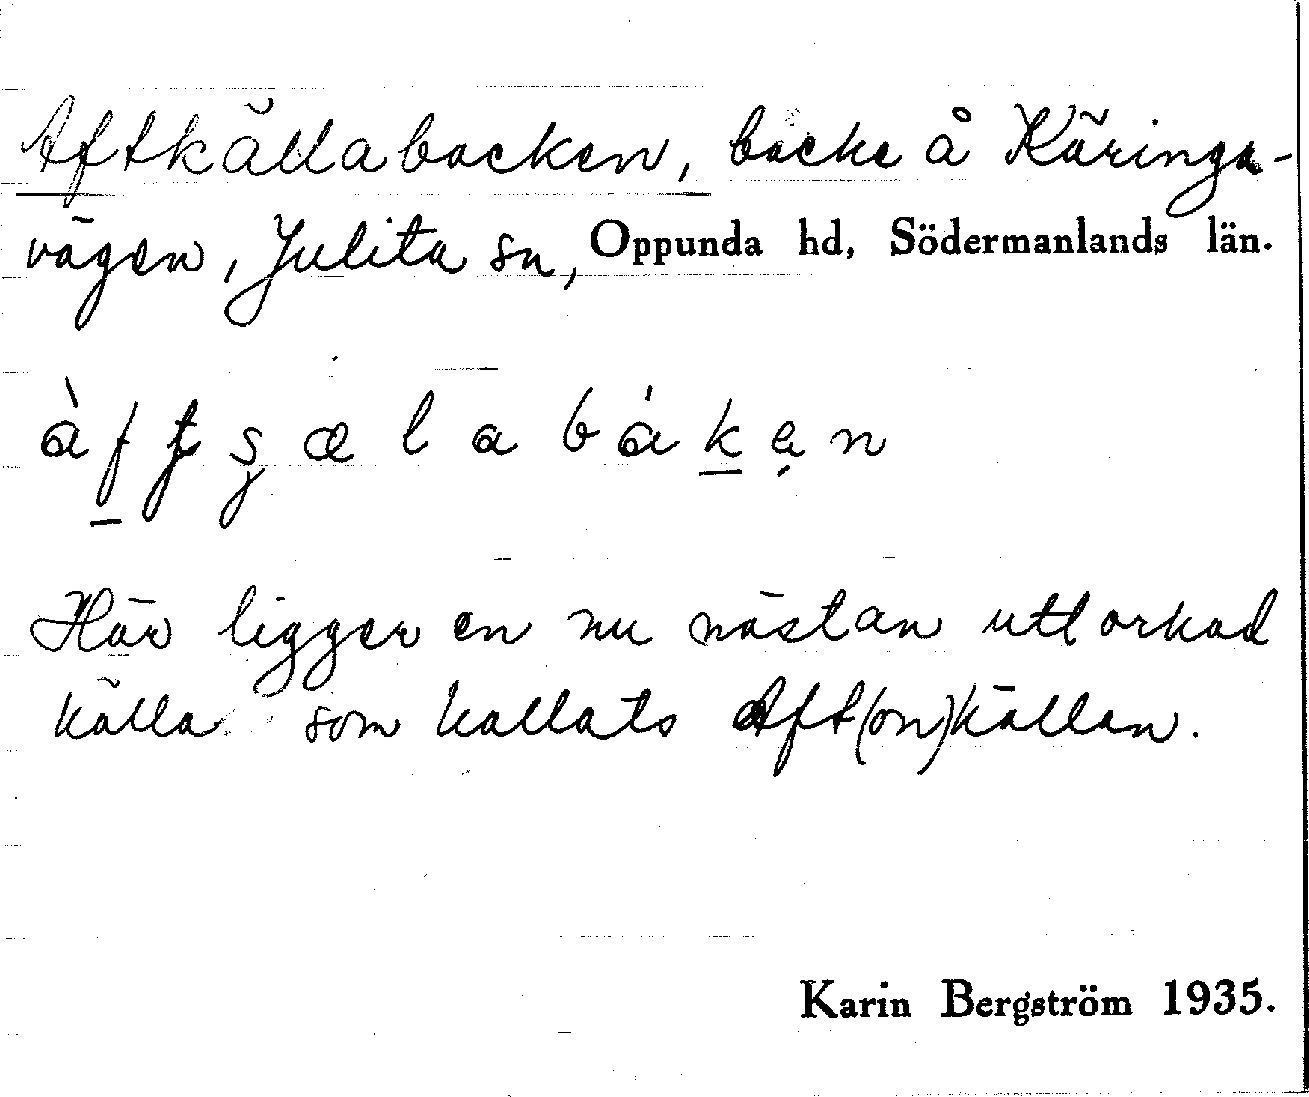 Aftkällabacken, backe å Käringa-
vägen, Julita sn, Oppunda hd, Södermanlands län.
Här ligger en nu nästan uttorkad
källa som kallats Aft(on)källan.
Karin Bergström 1935.